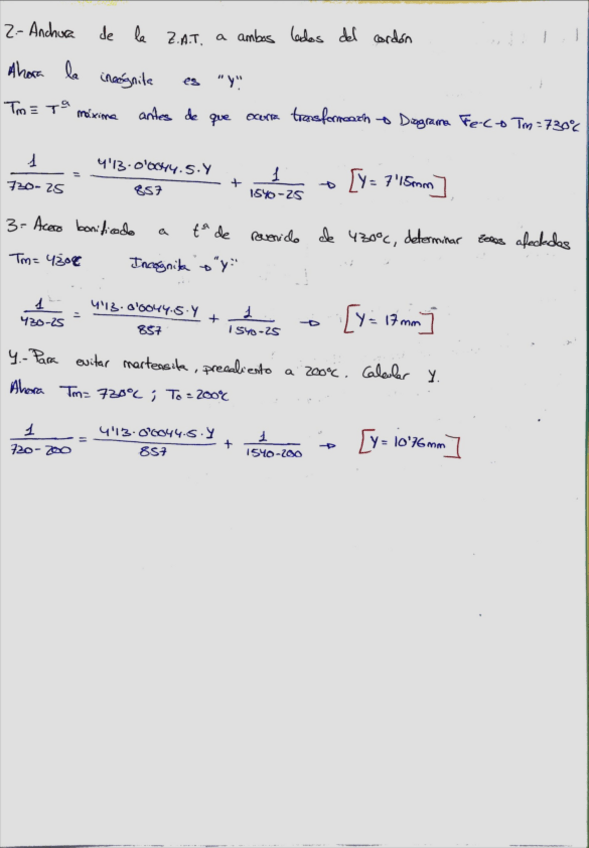 2.- Anchura de la Z.A.T. a ambos lados del cordón
Ahora la incógnita es "Y".
Tm ≡ Tª máxima antes de que ocurra transformación → Diagrama Fe-C → Tm = 730ºC
1/(730-25) = (4'13·0'0044·5·Y)/857 + 1/(1540-25) → [Y = 7'15mm]
3.- Acero bonificado a tª de revenido de 430ºC, determinar zonas afectadas
Tm = 430ºC Incógnita → "Y"
1/(430-25) = (4'13·0'0044·5·Y)/857 + 1/(1540-25) → [Y = 17mm]
4.- Para evitar martensita, precaliento a 200ºC. Calcular Y.
Ahora Tm = 730ºC ; To = 200ºC
1/(730-200) = (4'13·0'0044·5·Y)/857 + 1/(1540-200) → [Y = 10'76mm]